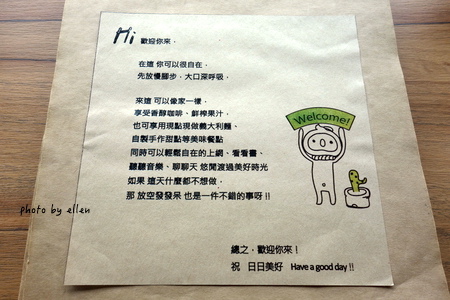 Hi 歡迎你來，
在這 你可以很自在，
先放慢腳步，大口深呼吸，
來這 可以像家一樣，
享受香醇咖啡、鮮榨果汁，
也可享用現點現做義大利麵、
自製手作甜點等美味餐點
同時可以輕鬆自在的上網、看看書、
聽聽音樂、聊聊天 悠閒渡過美好時光
如果 這天什麼都不想做，
那 放空發發呆 也是一件不錯的事呀 !!
Welcome!
總之，歡迎你來！
祝 日日美好 Have a good day !!
photo by ellen